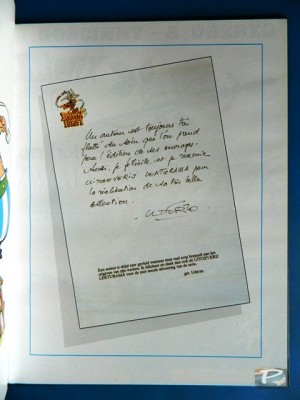 Un auteur est toujours très
flatté du soin que l'on prend
pour l'édition de ses ouvrages.
Aussi, je félicite et je remercie
UITGEVERIJ LEKTURAMA pour
la réalisation de sa très belle
collection.
UDERZO
Een auteur is altijd zeer gevleid wanneer men veel zorg besteedt aan het
uitgeven van zijn werken. Ik feliciteer en dank dan ook de UITGEVERIJ
LEKTURAMA voor de zeer mooie uitvoering van de serie.
get. Uderzo